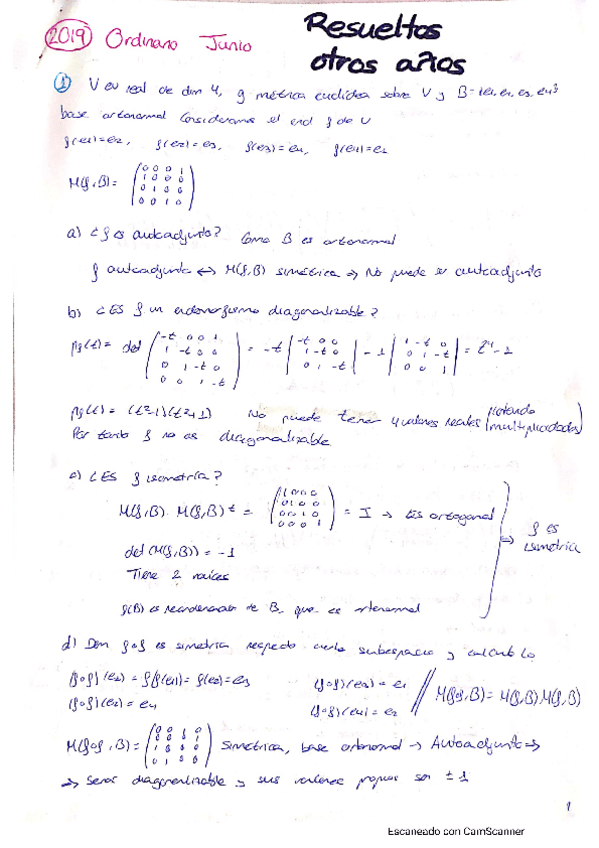 2019 Ordinario Junio
Resueltos
otros años
① V ev real de dim 4, g métrica euclídea sobre V y B={e1, e2, e3, e4}
base ortonormal Consideramos el end f de V
f(e1)=e2, f(e2)=e3, f(e3)=e4, f(e4)=e1
M(f,B)= (0 0 0 1
1 0 0 0
0 1 0 0
0 0 1 0)
a) ¿f es autoadjunto? Como B es ortonormal
f autoadjunto ↔ M(f,B) simétrica ⇒ No puede ser autoadjunto
b) ¿Es f un endomorfismo diagonalizable?
pf(t)= det (-t 0 0 1
1 -t 0 0
0 1 -t 0
0 0 1 -t) = -t |-t 0 0
1 -t 0
0 1 -t| - 1 |1 -t 0
0 1 -t
0 0 1| = t⁴-1
pf(t) = (t²-1)(t²+1) No puede tener 4 valores reales (contando multiplicidades)
Por tanto f no es diagonalizable
c) ¿Es f isometría?
M(f,B) · M(f,B)ᵗ = (1 0 0 0
0 1 0 0
0 0 1 0
0 0 0 1) = I → Es ortogonal
⇒ f es isometría
det(M(f,B)) = -1
Tiene 2 raíces
f(B) es reordenación de B, que es ortonormal
d) Dem f∘f es simetría respecto cierto subespacio y calculalo
(f∘f)(e1) = f(f(e1)) = f(e2)=e3 (f∘f)(e3) = e1 // M(f∘f,B) = M(f,B)M(f,B)
(f∘f)(e2) = e4 (f∘f)(e4) = e2
M(f∘f,B) = (0 0 1 0
0 0 0 1
1 0 0 0
0 1 0 0) Simétrica, base ortonormal → Autoadjunto ⇒
⇒ Será diagonalizable y sus valores propios son ± 1
1
Escaneado con CamScanner